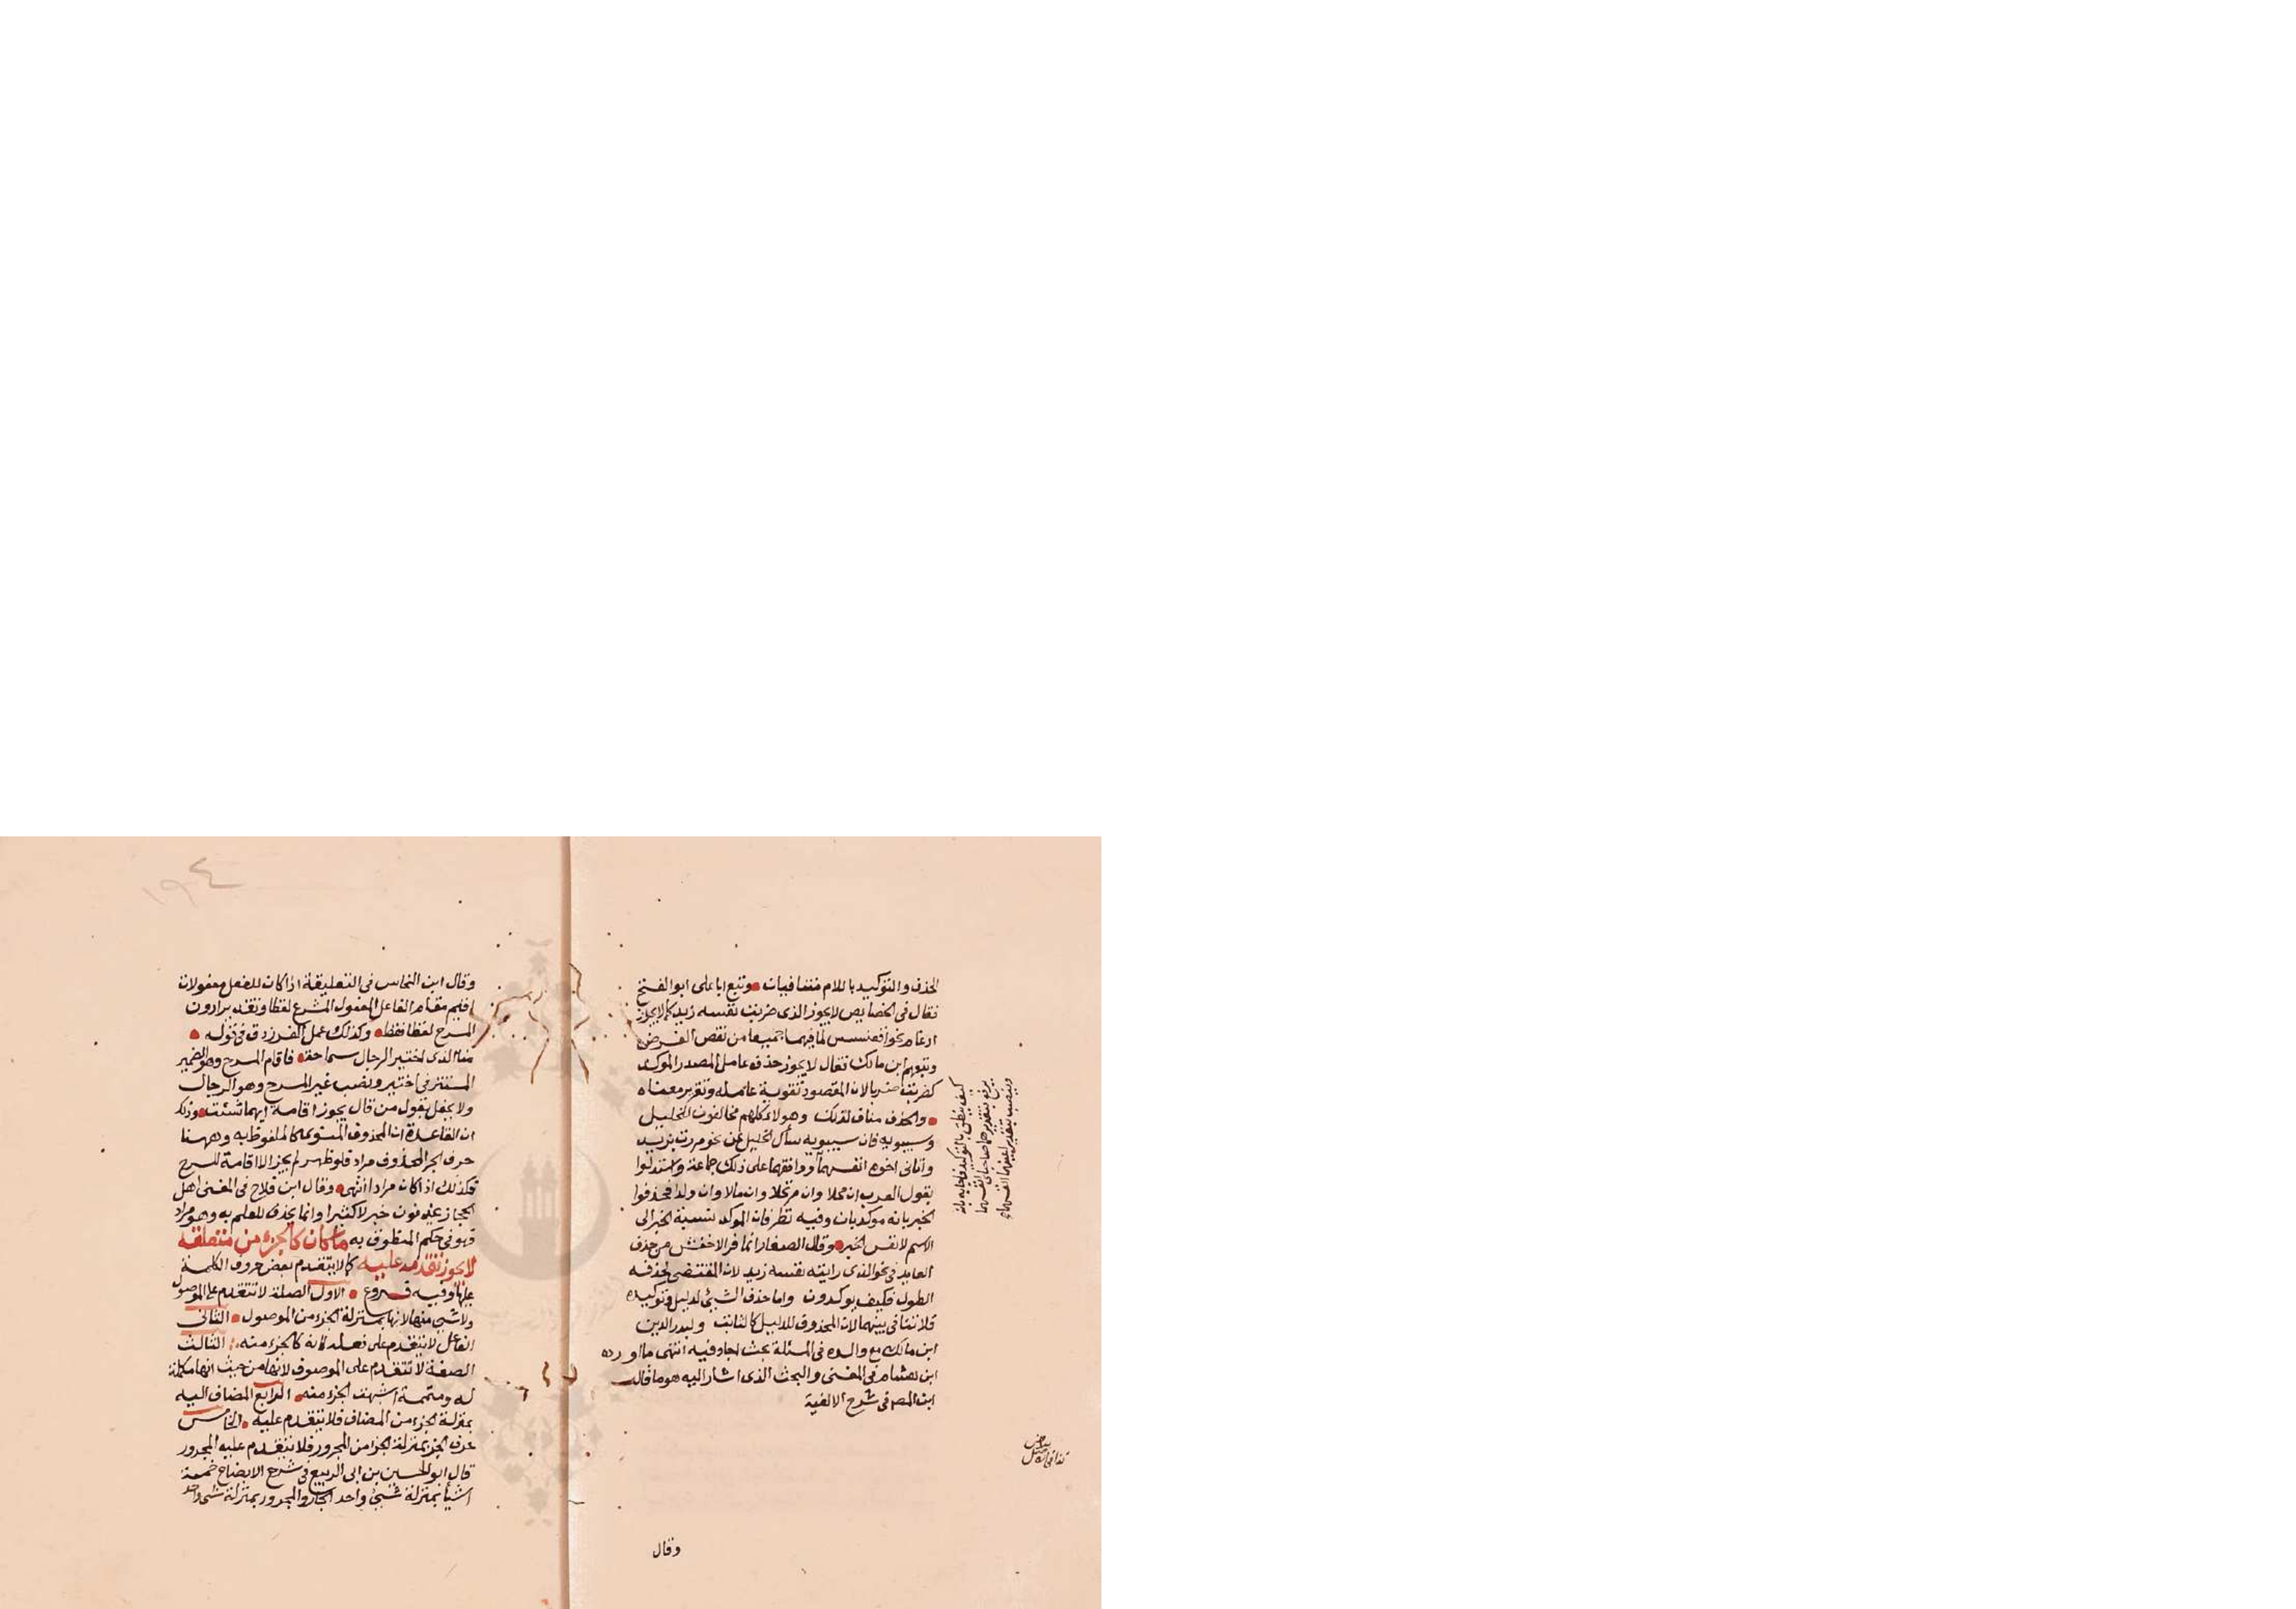 الحذف والتوكيد باللام متنافيان وتبع ابا علي ابو الفتح
فقال في الخصايص لا يجوز الذي ضربت نفسه زيد كما لا يجوز
ادغام نحو اقعنسس لما فيهما جميعا من نقص الغرض
وتبعهم ابن مالك فقال لا يجوز حذف عامل المصدر الموكد
كضربت ضربا لان المقصود تقوية عامله وتقرير معناه
والحذف مناف لذلك وهولاء كلهم مخالفون للخليل
وسيبويه فان سيبويه سأل الخليل عن نحو مررت بزيد
وأتاني اخوه انفسهما ووافقهما على ذلك جماعة واستدلوا
بقول العرب ان محلا وان مرتحلا وان مالا وان ولدا فحذفوا
الخبر بانه موكد بان وفيه نظر فان الموكد نسبة الخبر الى
الاسم لا نفس الخبر وقال الصفار انما فر الاخفش من حذف
العايد في نحو الذي رايته نفسه زيد لان المقتضي لحذفه
الطول فكيف يوكدون واما حذف الشيئ لدليل وتوكيده
فلا تنافي بينهما لان المحذوف للدليل كالثابت ولبدر الدين
ابن مالك مع والده في المسئلة بحث اجاد فيه انتهى ما اورده
ابن هشام في المغني والبحث الذي اشار اليه هو ما قال
ابن المص في شرح الالفية
كيف ينطق بالتوكيد فاجابه بانه
يرفع بتقدير هما صاحباي انفسهما
وينصب بتقدير اعنيهما انفسهما
وقال
١٩٤
وقال ابن النحاس في التعليقة اذا كان للفعل مفعولان
اقيم مقام الفاعل المفعول المسرح لفظا وتقديرا دون
المسرح لفظا فقط وكذلك عمل الفرزدق في قوله
منا الذي اختير الرجال سماحة فاقام المسرح وهو الضمير
المستتر في اختير ونصب غير المسرح وهو الرجال
ولا يحفل بقول من قال يجوز اقامة ايهما شئت وذلك
ان القاعدة ان المحذوف المنوي كالملفوظ به وههنا
حرف الجر المحذوف مراد فلو ظهر لم يجز الا اقامة المسرح
فكذلك اذا كان مرادا انتهى وقال ابن فلاح في المغني اهل
الحجاز يحذفون خبر لا كثيرا وانما يحذف للعلم به وهو مراد
فهو في حكم المنطوق به ما كان كالجزء من متعلقه
لا يجوز تقدمه عليه كما لا يتقدم بعض حروف الكلمة
عليها وفيه فروع الاول الصلة لا تتقدم على الموصول
ولا شيئ منها لانها بمنزلة الجزء من الموصول الثاني
الفاعل لا يتقدم على فعله لانه كالجزء منه الثالث
الصفة لا تتقدم على الموصوف لانها من حيث انها مكملة
له ومتممة اشبهت الجزء منه الرابع المضاف اليه
بمنزلة الجزء من المضاف فلا يتقدم عليه الخامس
حرف الجر بمنزلة الجزء من المجرور فلا يتقدم عليه المجرور
قال ابو الحسين بن ابي الربيع في شرح الايضاح خمسة
اشيأ بمنزلة شيئ واحد الجار والمجرور بمنزلة شئ واحد